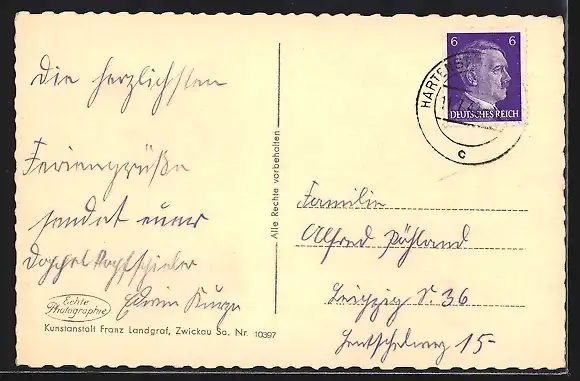 Die herzlichsten
Feriengrüße
sendet euer
Doppelkopfspieler
Edwin Kunze
Echte
Photographie
Kunstanstalt Franz Landgraf, Zwickau Sa. Nr. 10397
Alle Rechte vorbehalten
HARTEN
c
6 6
DEUTSCHES REICH
Familie
Alfred Pöhland
Leipzig S. 36
15-